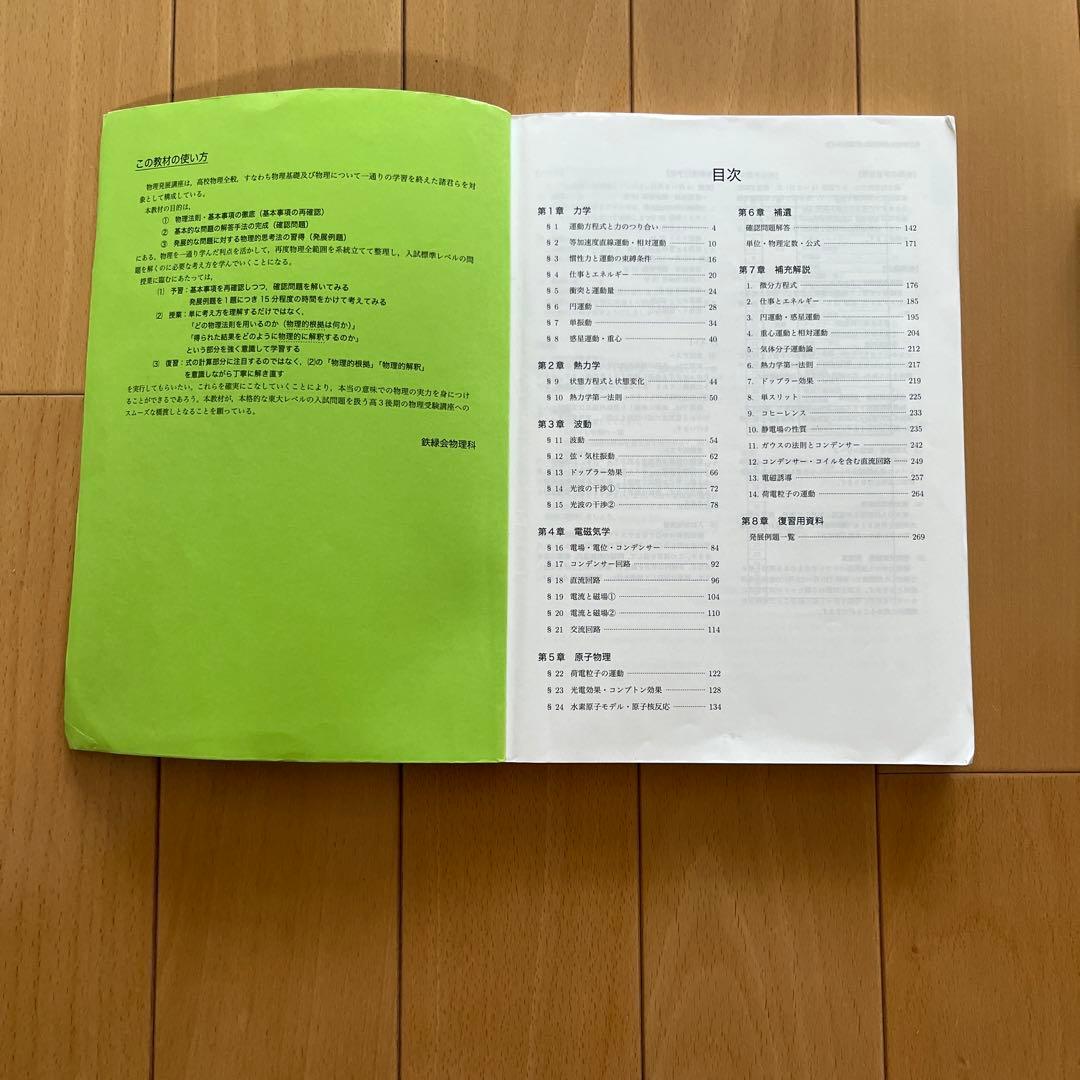 この教材の使い方
物理発展講座は，高校物理全般，すなわち物理基礎及び物理について一通りの学習を終えた諸君らを対
象として構成している。
本教材の目的は，
① 物理法則・基本事項の徹底（基本事項の再確認）
② 基本的な問題の解答手法の完成（確認問題）
③ 発展的な問題に対する物理的思考法の習得（発展例題）
にある。物理を一通り学んだ利点を活かして，再度物理全範囲を系統立てて整理し，入試標準レベルの問
題を解くのに必要な考え方を学んでいくことになる。
授業に臨むにあたっては，
⑴ 予習：基本事項を再確認しつつ，確認問題を解いてみる
発展例題を１題につき 15 分程度の時間をかけて考えてみる
⑵ 授業：単に考え方を理解するだけではなく，
「どの物理法則を用いるのか（物理的根拠は何か）」
「得られた結果をどのように物理的に解釈するのか」
という部分を強く意識して学習する
⑶ 復習：式の計算部分に注目するのではなく，⑵の「物理的根拠」「物理的解釈」
を意識しながら丁寧に解き直す
を実行してもらいたい。これらを確実にこなしていくことにより，本当の意味での物理の実力を身につけ
ることができるであろう。本教材が，本格的な東大レベルの入試問題を扱う高３後期の物理受験講座への
スムーズな橋渡しとなることを願っている。
鉄緑会物理科
目次
第１章 力学
§ 1 運動方程式と力のつり合い 4
§ 2 等加速度直線運動・相対運動 10
§ 3 慣性力と運動の束縛条件 16
§ 4 仕事とエネルギー 20
§ 5 衝突と運動量 24
§ 6 円運動 28
§ 7 単振動 34
§ 8 惑星運動・重心 40
第２章 熱力学
§ 9 状態方程式と状態変化 44
§ 10 熱力学第一法則 50
第３章 波動
§ 11 波動 54
§ 12 弦・気柱振動 62
§ 13 ドップラー効果 66
§ 14 光波の干渉① 72
§ 15 光波の干渉② 78
第４章 電磁気学
§ 16 電場・電位・コンデンサー 84
§ 17 コンデンサー回路 92
§ 18 直流回路 96
§ 19 電流と磁場① 104
§ 20 電流と磁場② 110
§ 21 交流回路 114
第５章 原子物理
§ 22 荷電粒子の運動 122
§ 23 光電効果・コンプトン効果 128
§ 24 水素原子モデル・原子核反応 134
第６章 補遺
確認問題解答 142
単位・物理定数・公式 171
第７章 補充解説
1. 微分方程式 176
2. 仕事とエネルギー 185
3. 円運動・惑星運動 195
4. 重心運動と相対運動 204
5. 気体分子運動論 212
6. 熱力学第一法則 217
7. ドップラー効果 219
8. 単スリット 225
9. コヒーレンス 233
10. 静電場の性質 235
11. ガウスの法則とコンデンサー 242
12. コンデンサー・コイルを含む直流回路 249
13. 電磁誘導 257
14. 荷電粒子の運動 264
第８章 復習用資料
発展例題一覧 269